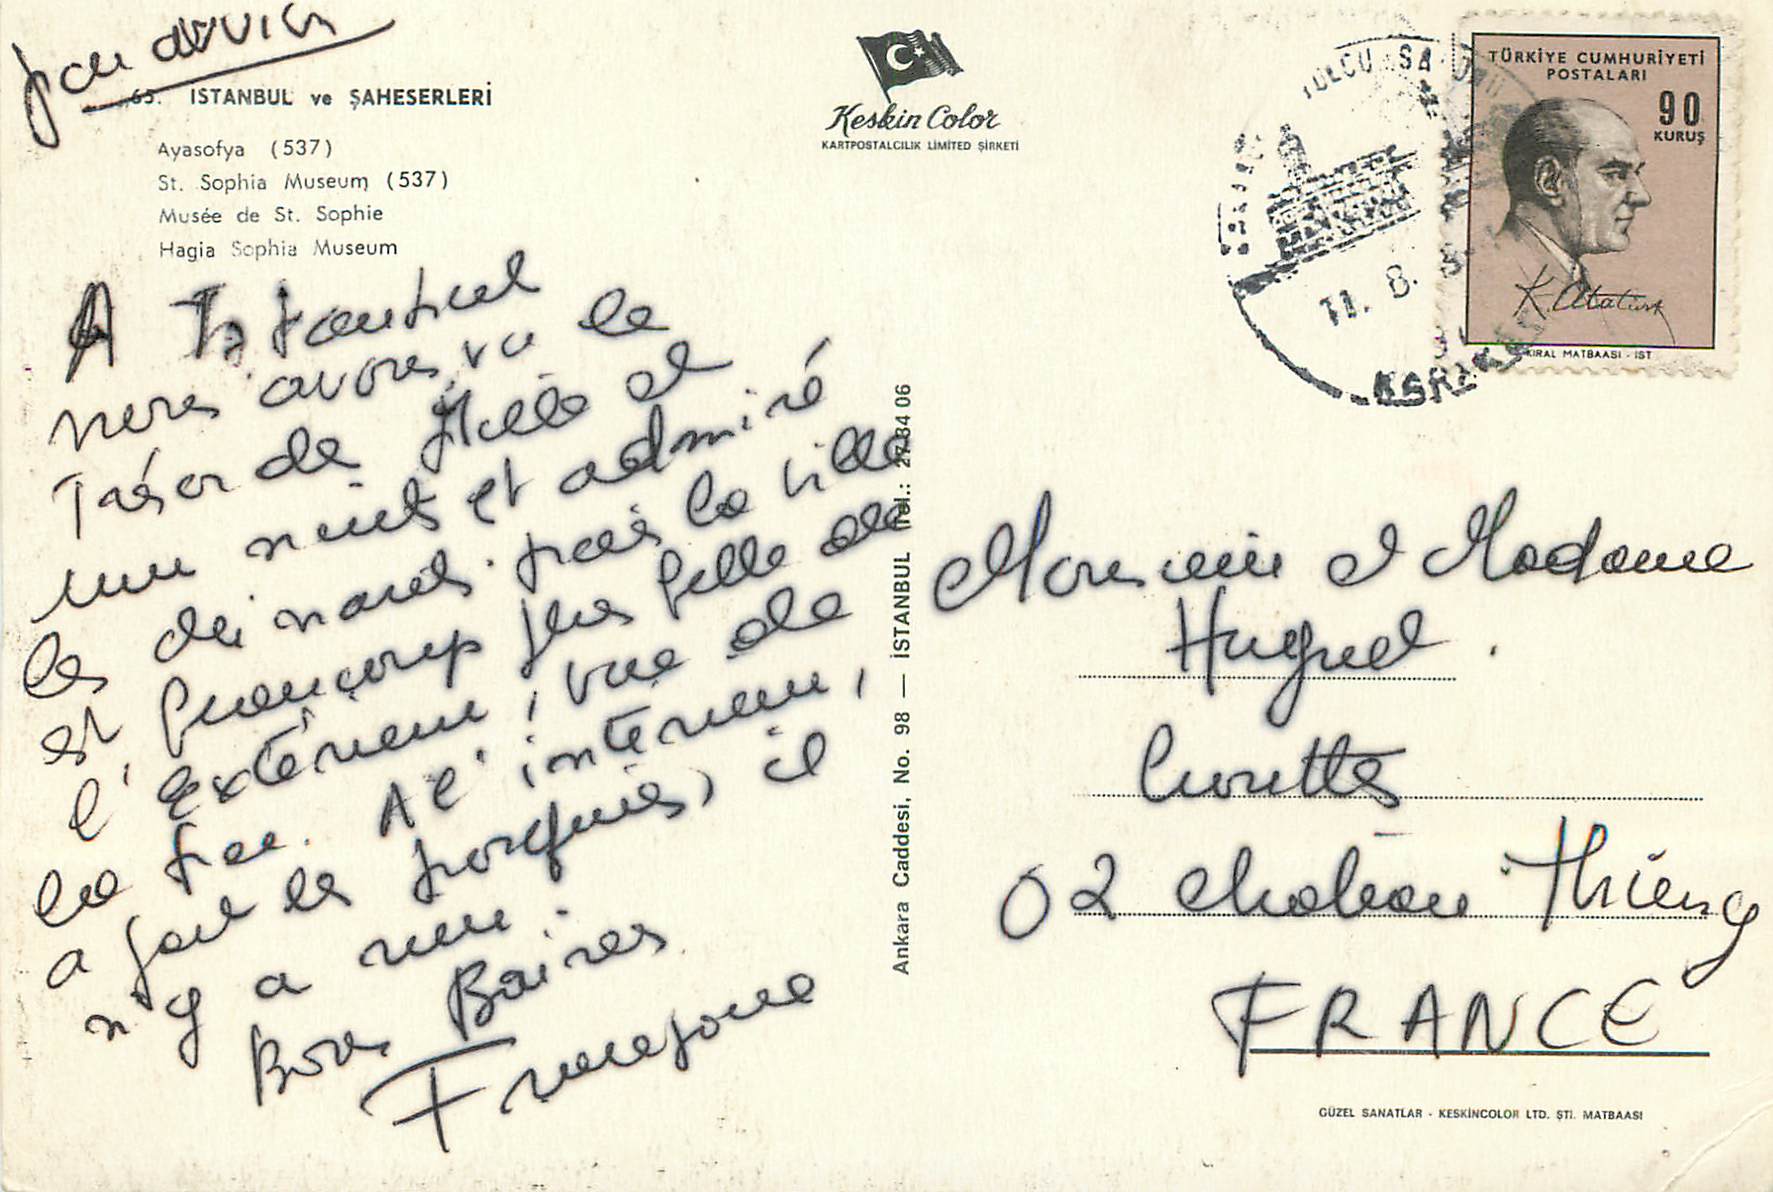 par avion
65. ISTANBUL ve ŞAHESERLERİ
Ayasofya (537)
St. Sophia Museum (537)
Musée de St. Sophie
Hagia Sophia Museum
A Istanbul
nous avons vu le
Trésor de Mille et
une nuits et admiré
les derviches. mais la ville
est beaucoup plus belle de
l'extérieur, vue de
la mer. A l'intérieur,
à part les mosquées, il
n'y a rien.
Bons Baisers
Françoise
Keskin Color
KARTPOSTALCILIK LİMİTED ŞİRKETİ
Ankara Caddesi, No. 98 — İSTANBUL Tel.: 27 84 06
TÜRKİYE CUMHURİYETİ
POSTALARI
90
KURUŞ
K. Atatürk
KIRAL MATBAASI - İST
YOLCU SA
11. 8.
Monsieur et Madame
Huguel.
02 Château Thierry
FRANCE
GÜZEL SANATLAR - KESKİNCOLOR LTD. ŞTİ. MATBAASI